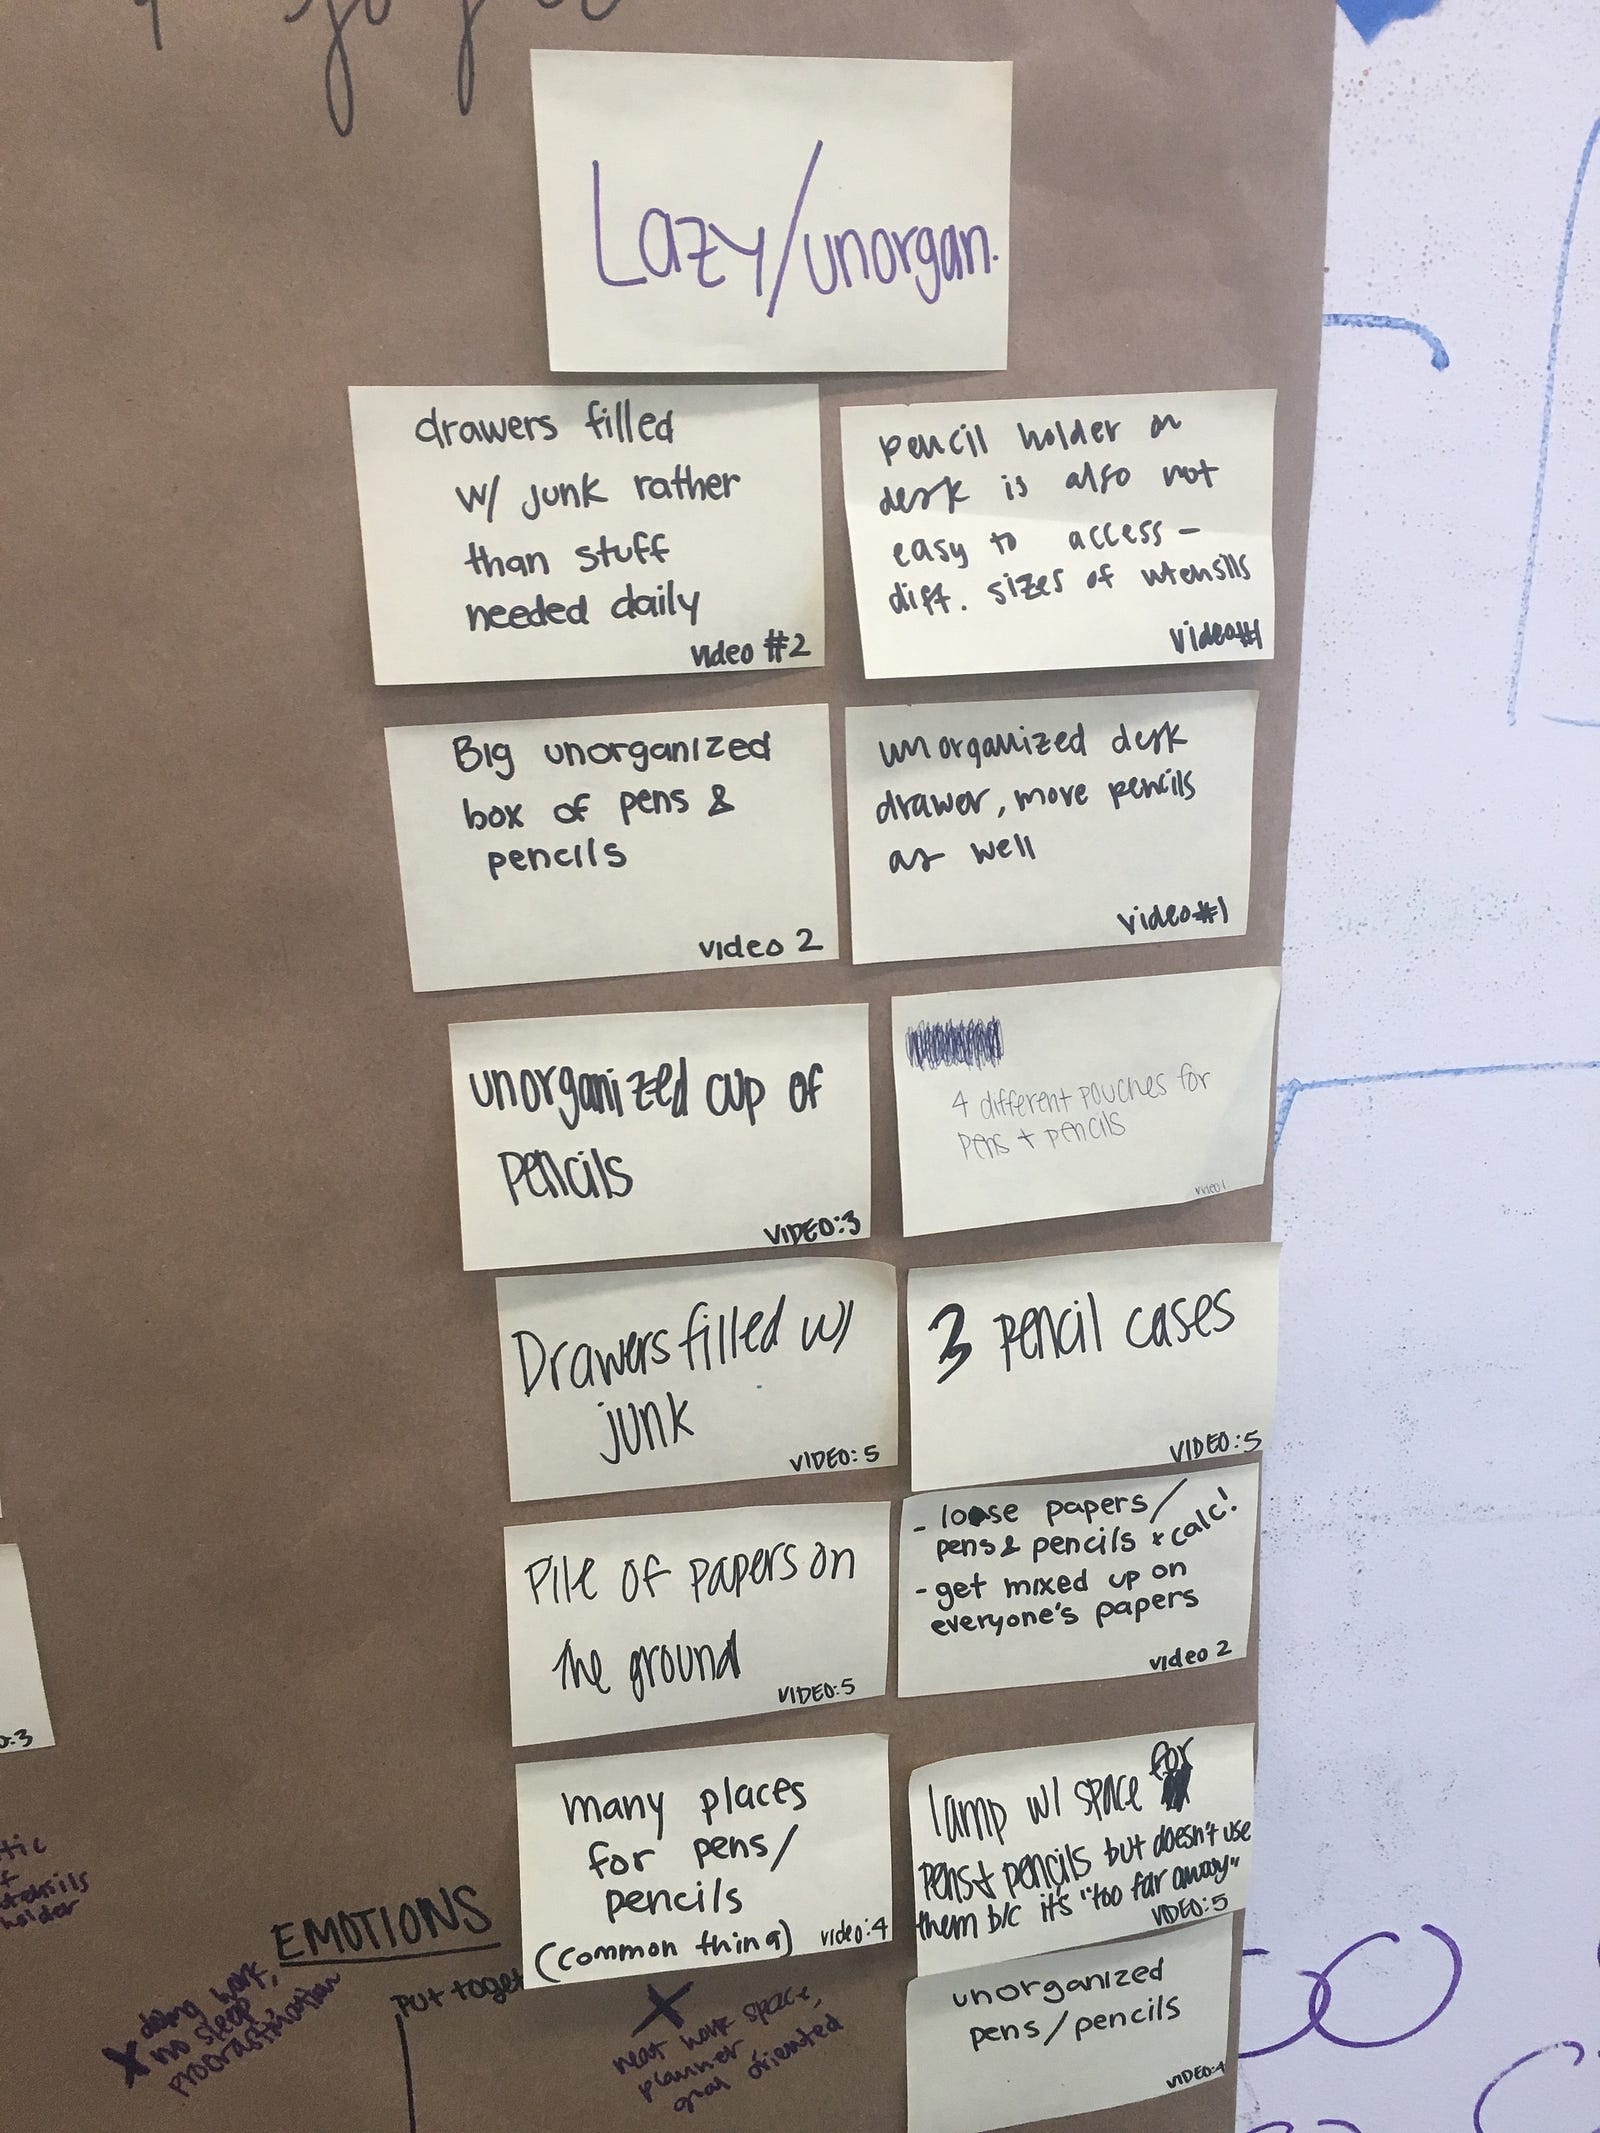 Lazy/unorgan.
drawers filled
w/ junk rather
than stuff
needed daily
video #2
pencil holder on
desk is also not
easy to access –
diff. sizes of utensils
video#1
Big unorganized
box of pens &
pencils
video 2
unorganized desk
drawer, more pencils
as well
video#1
unorganized cup of
pencils
VIDEO:3
4 different pouches for
pens + pencils
video 1
Drawers filled w/
junk
VIDEO: 5
3 pencil cases
VIDEO: 5
Pile of papers on
the ground
VIDEO:5
- loose papers/
pens & pencils & calc!
- get mixed up on
everyone's papers
video 2
many places
for pens/
pencils
(common thing)
video:4
lamp w/ space for
pens + pencils but doesn't use
them b/c it's "too far away"
VIDEO: 5
unorganized
pens/pencils
VIDEO:4
:3
tic
utensils
holder
EMOTIONS
X doing work,
no sleep
procrastination
Put toget
X
neat work space,
planner
goal oriented